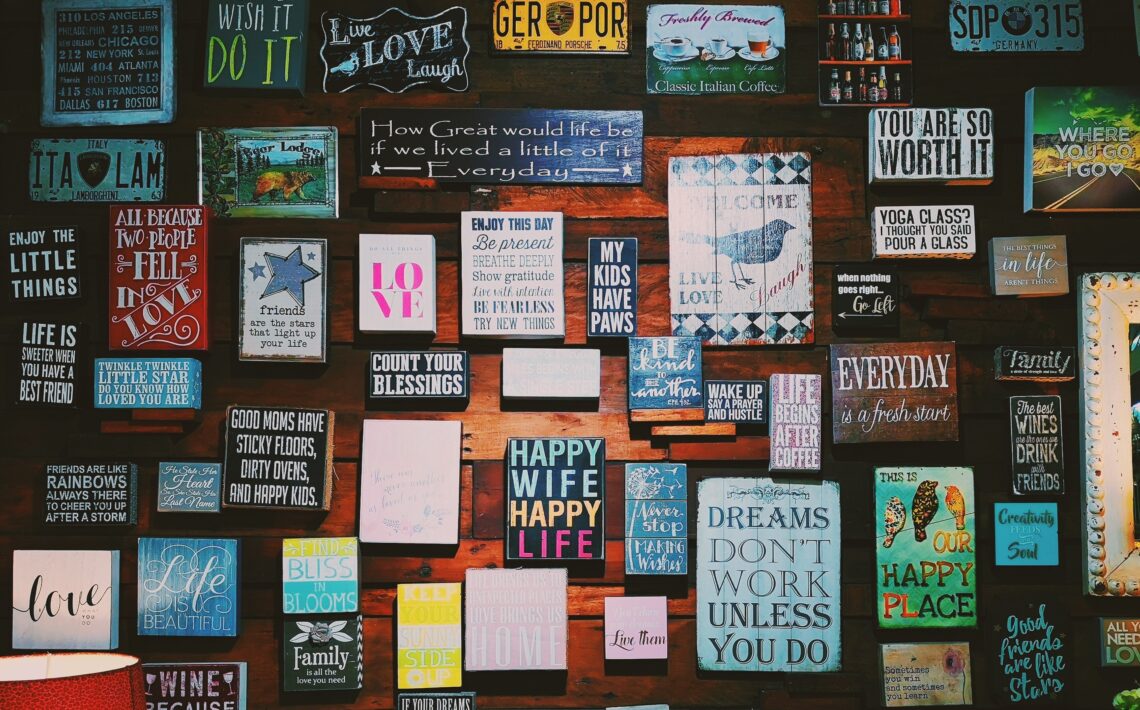 310 LOS ANGELES
PHILADELPHIA 215 DENVER
NEW ORLEANS CHICAGO
212 NEW YORK St. Louis
MIAMI 404 ATLANTA
Phoenix HOUSTON 713
415 SAN FRANCISCO
DALLAS 617 BOSTON
WISH IT
DO IT
Live
LOVE
Laugh
GER POR
FERDINAND PORSCHE
Freshly Brewed
Cappuccino Espresso Cafe Latte
Classic Italian Coffee
SDP 315
GERMANY
ITALY
ITA LAM
LAMBORGHINI
Bear Lodge
How Great would life be
if we lived a little of it
Everyday
YOU ARE SO
WORTH IT
WHERE
YOU GO
I GO
ENJOY THE
LITTLE
THINGS
ALL BECAUSE
TWO PEOPLE
FELL
IN
LOVE
friends
are the stars
that light up
your life
DO ALL THINGS
LO
VE
ENJOY THIS DAY
Be present
BREATHE DEEPLY
Show gratitude
Live with intention
BE FEARLESS
TRY NEW THINGS
MY
KIDS
HAVE
PAWS
WELCOME
LIVE
LOVE
Laugh
YOGA CLASS?
I THOUGHT YOU SAID
POUR A GLASS
when nothing
goes right...
Go Left
THE BEST THINGS
in life
AREN'T THINGS
LIFE IS
SWEETER WHEN
YOU HAVE A
BEST FRIEND
TWINKLE TWINKLE
LITTLE STAR
DO YOU KNOW HOW
LOVED YOU ARE
COUNT YOUR
BLESSINGS
BE
kind
to one
another
WAKE UP
SAY A PRAYER
AND HUSTLE
LIFE
BEGINS
AFTER
COFFEE
EVERYDAY
is a fresh start
Family
GOOD MOMS HAVE
STICKY FLOORS,
DIRTY OVENS,
AND HAPPY KIDS.
The best
WINES
are the ones we
DRINK
with
FRIENDS
FRIENDS ARE LIKE
RAINBOWS
ALWAYS THERE
TO CHEER YOU UP
AFTER A STORM
He Stole Her
Heart
So She Stole His
Last Name
HAPPY
WIFE
HAPPY
LIFE
Never
stop
MAKING
Wishes
DREAMS
DON'T
WORK
UNLESS
YOU DO
THIS IS
OUR
HAPPY
PLACE
Creativity
FEEDS
the
Soul
love
WHAT
YOU
DO
Life
IS
BEAUTIFUL
FIND
BLISS
IN
BLOOMS
Family
is all the
love you need
KEEP
YOUR
SUNNY
SIDE
UP
LOVE BRINGS US
HOME
Live them
Sometimes
you win
and sometimes
you learn
Good
friends
are like
Stars
ALL YOU
NEED
LOVE
WINE
BECAUSE
IF YOUR DREAMS